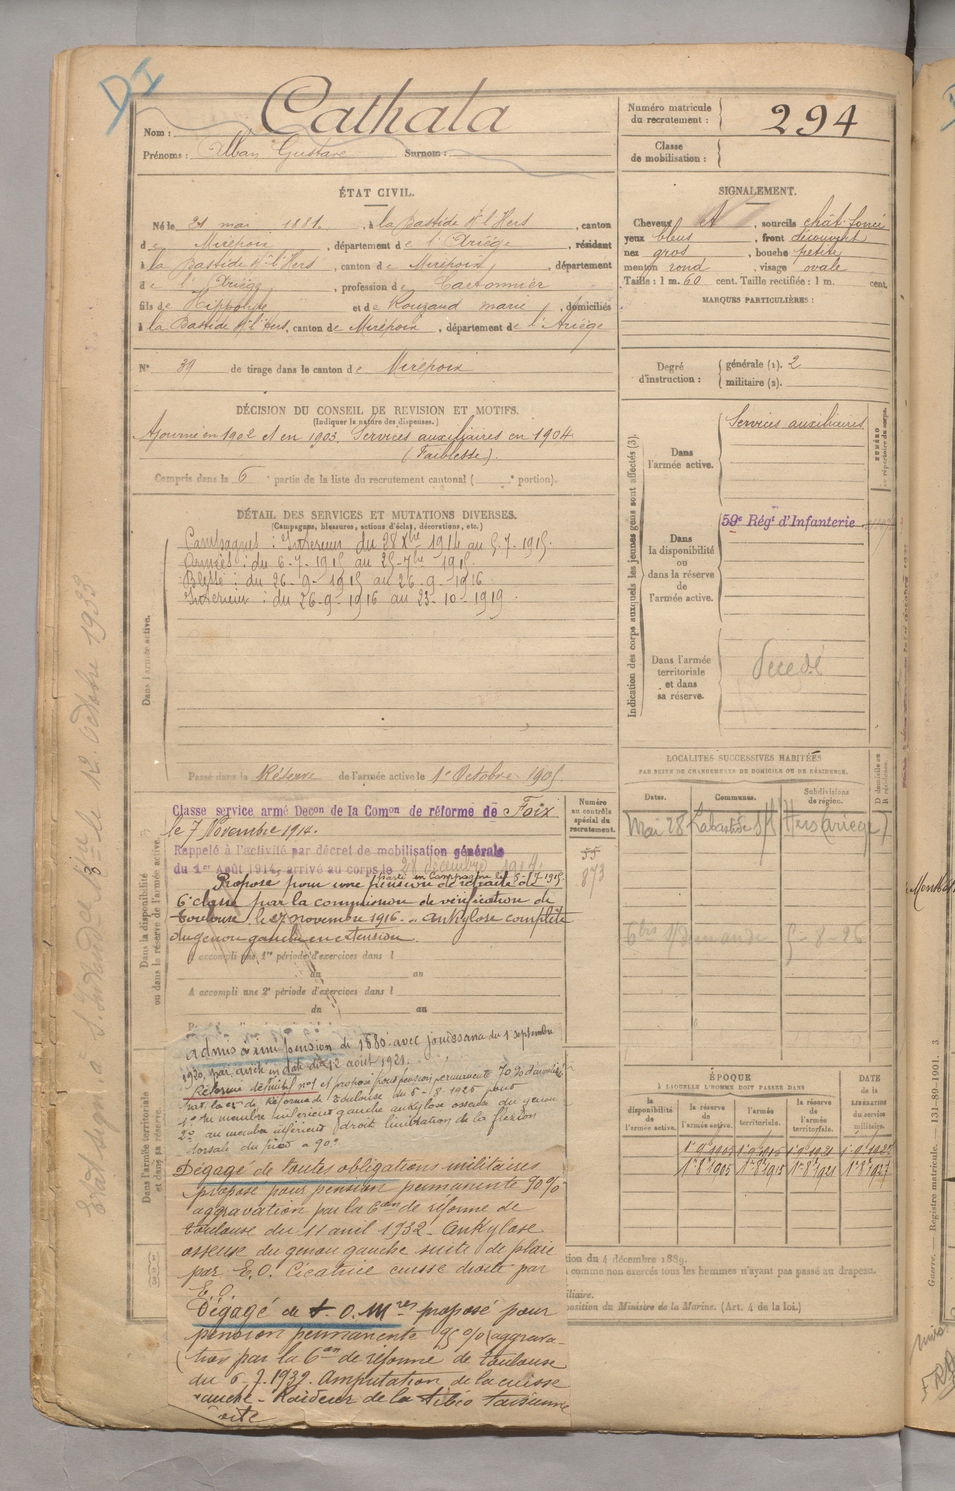 DI
Nom : Cathala
Prénoms : Alban Gustave Surnom :
Numéro matricule du recrutement : 294
Classe de mobilisation :
ÉTAT CIVIL.
Né le 21 mai 1881, à la Bastide s/ l'Hers, canton
de Mirepoix, département de l'Ariège, résidant
à la Bastide s/ l'Hers, canton de Mirepoix, département
de l'Ariège, profession de Cartonnier
fils de Hippolyte et de Rouzaud marie, domiciliés
à la Bastide s/ l'Hers, canton de Mirepoix, département de l'Ariège
N° 39 de tirage dans le canton de Mirepoix
SIGNALEMENT.
Cheveux et, sourcils chât. foncé
yeux bleus, front découvert
nez gros, bouche petite
menton rond, visage ovale
Taille : 1 m. 60 cent. Taille rectifiée : 1 m. cent.
MARQUES PARTICULIÈRES :
Degré d'instruction : générale (1). 2
militaire (2).
DÉCISION DU CONSEIL DE REVISION ET MOTIFS.
(Indiquer la nature des dispenses.)
Ajourné en 1902 et en 1903. Services auxiliaires en 1904
(Faiblesse).
Compris dans la 6e partie de la liste du recrutement cantonal ( e portion).
DÉTAIL DES SERVICES ET MUTATIONS DIVERSES.
(Campagnes, blessures, actions d'éclat, décorations, etc.)
Dans l'armée active.
Campagnes : Intérieur du 28 Xbre 1914 au 5-7-1915
Armées : du 6-7-1915 au 25-7bre 1915
Blessé : du 26-9-1915 au 26-9-1916
Intérieur : du 26-9-1916 au 23-10-1919
Passé dans la Réserve de l'armée active le 1er Octobre 1905
Indication des corps auxquels les jeunes gens sont affectés (3).
Dans l'armée active.
Services auxiliaires
Dans la disponibilité ou dans la réserve de l'armée active.
59e Régt d'Infanterie
Dans l'armée territoriale et dans sa réserve.
Décédé
LOCALITÉS SUCCESSIVES HABITÉES
PAR SUITE DE CHANGEMENTS DE DOMICILE OU DE RÉSIDENCE.
Dates. Communes. Subdivisions de région. D domicile ou R résidence.
Mai 28 Labastide s/ l'Hers (Ariège)
5-8-26
Dans la disponibilité ou dans la réserve de l'armée active.
Classé service armé Décon de la Comon de réforme de Foix
le 7 Novembre 1914.
Rappelé à l'activité par décret de mobilisation générale
du 1er Août 1914, arrivé au corps le 28 décembre 1914.
Parti en campagne le 5-7-1915
Proposé pour une pension de retraite de
6e classe par la commission de vérification de
Toulouse le 27 novembre 1916. Ankylose complète
du genou gauche en extension.
Numéro au contrôle spécial du recrutement.
55
873
A accompli une 1re période d'exercices dans l
du au
A accompli une 2e période d'exercices dans l
du au
Dans l'armée territoriale et dans sa réserve.
Admis à une pension de 1880 avec jouissance du 1 septembre
1920, par arrêté en date du 12 août 1921.
Réformé définitif no 1 et proposé pour pension permanente 70 %
par la con de Réforme de Toulouse du 5-8-1926 pour
1o au membre inférieur gauche ankylose osseuse du genou
2o au membre inférieur droit limitation de la flexion
dorsale du pied à 90o
Dégagé de toutes obligations militaires
proposé pour pension permanente 90%
aggravation par la Con de réforme de
Toulouse du 11 avril 1932 - Ankylose
osseuse du genou gauche suite de plaie
par E.O. Cicatrice cuisse droite par
E.O.
Dégagé de t. O. Mres proposé pour
pension permanente 95 % (aggrava-
tion) par la Con de réforme de Toulouse
du 6-7-1939. Amputation de la cuisse
gauche - Raideur de la tibio tarsienne
oite
ÉPOQUE
À LAQUELLE L'HOMME DOIT PASSER DANS
la disponibilité de l'armée active. la réserve de l'armée active. l'armée territoriale. la réserve de l'armée territoriale.
DATE de la LIBÉRATION du service militaire.
1er 8bre 1905 1er 8bre 1915 1er 8bre 1921 1er 8bre 1927
tion du 4 décembre 1889.
comme non exercés tous les hommes n'ayant pas passé au drapeau.
iliaire.
position du Ministre de la Marine. (Art. 4 de la loi.)
Guerre. — Registre matricule. 131-89-1901. 3